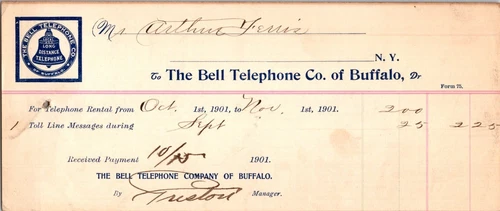 Mr Arthur Ferris
THE BELL TELEPHONE CO.
OF BUFFALO.
LOCAL
LONG
DISTANCE
TELEPHONE
N. Y.
To The Bell Telephone Co. of Buffalo, Dr
Form 75.
For Telephone Rental from Oct. 1st, 1901, to Nov. 1st, 1901. 200
1 Toll Line Messages during Sept 25 2 25
Received Payment 10/15 1901.
THE BELL TELEPHONE COMPANY OF BUFFALO.
By Manager.